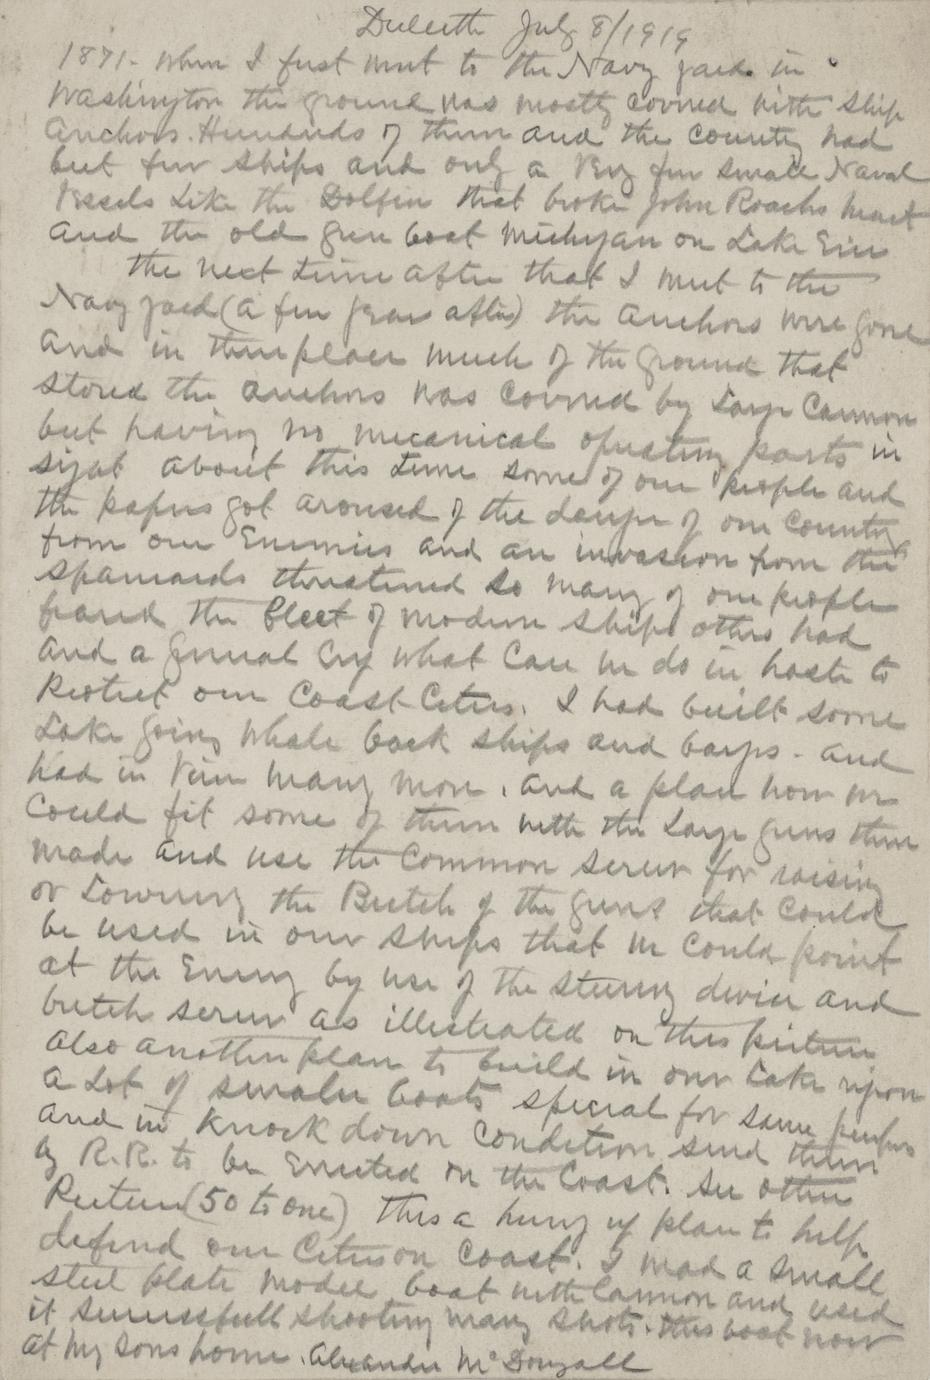 Duluth July 8/1919
1871. when I first went to the Navy yard in
Washington the ground was mostly covered with ship
Anchors. Hundreds of them and the country had
but few ships and only a very few small Naval
Vessels Like the Dolfin that broke John Roachs heart
and the old gun boat Michigan on Lake Erie
the next time after that I went to the
Navy yard (a few years after) the anchors were gone
and in their place much of the ground that
stored the anchors was covered by Large Cannon
but having no mecanical operating parts in
sight about this time some of our people and
the papers got aroused of the danger of our Country
from our Enemies and an invasion from the
Spaniards threatened so many of our people
feared the fleet of modern ships others had
and a general cry what can we do in haste to
Protect our Coast Cities. I had built some
Lake going whale back ships and barges - and
had in view many more. and a plan how we
Could fit some of them with the Large guns then
made and use the Common screw for raising
or Lowering the Breech of the guns that could
be used in our ships that we could point
at the Enemy by use of the steering device and
breech screw as illustrated on this picture
Also another plan to build in our Lake region
a Lot of smaler boats special for same purpos
and in knock down condition send them
by R.R. to be Erected on the Coast. See other
Picture (50 to one) this a hurry up plan to help
defend our Cities on Coast. I mad a small
steel plate model boat with Cannon and used
it successfull shooting many shots. this boat now
at my sons home. Alexander McDougall